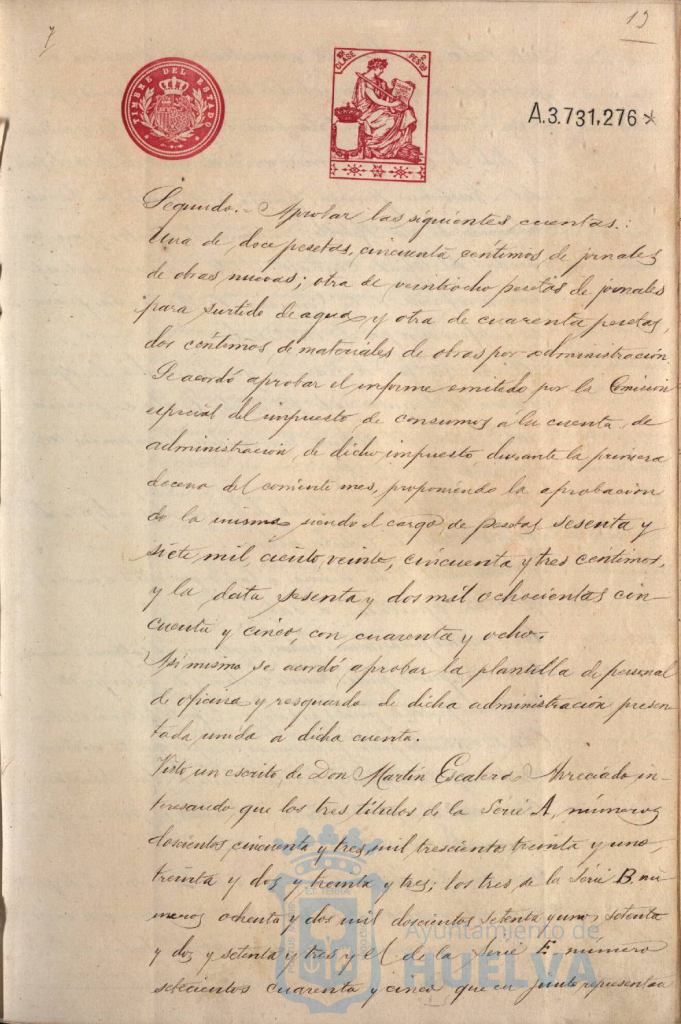 7
13
TIMBRE DEL ESTADO
10ª CLASE
2 PESTAS
A.3.731,276*
Segundo.- Aprobar las siguientes cuentas:
Una de doce pesetas, cincuenta céntimos, de jornales
de obras nuevas; otra de veintiocho pesetas de jornales
para surtido de agua y otra de cuarenta pesetas,
dos céntimos de materiales de obras por administración.
Se acordó aprobar el informe emitido por la Comisión
especial del impuesto de consumos á la cuenta de
administración, de dicho impuesto durante la primera
decena del corriente mes, proponiendo la aprobación
de la misma siendo el cargo de pesetas sesenta y
siete mil ciento veinte, cincuenta y tres centimos,
y la data sesenta y dos mil ochocientas cin-
cuenta y cinco, con cuarenta y ocho.
Asi mismo se acordó aprobar la plantilla de personal
de oficina y resguardo de dicha administración presen
tada unida a dicha cuenta.
Visto un escrito de Don Martin Escalera in-
teresando que los tres títulos de la Serie A, números
doscientos cincuenta y tres mil trescientos treinta y uno,
treinta y dos y treinta y tres; los tres, de la Série B, nú
meros ochenta y dos mil doscientos setenta y uno, setenta
y dos y setenta y tres y el de la Serie E, número
setecientos cuarenta y cinco que en junto representan
Ayuntamiento de
HUELVA